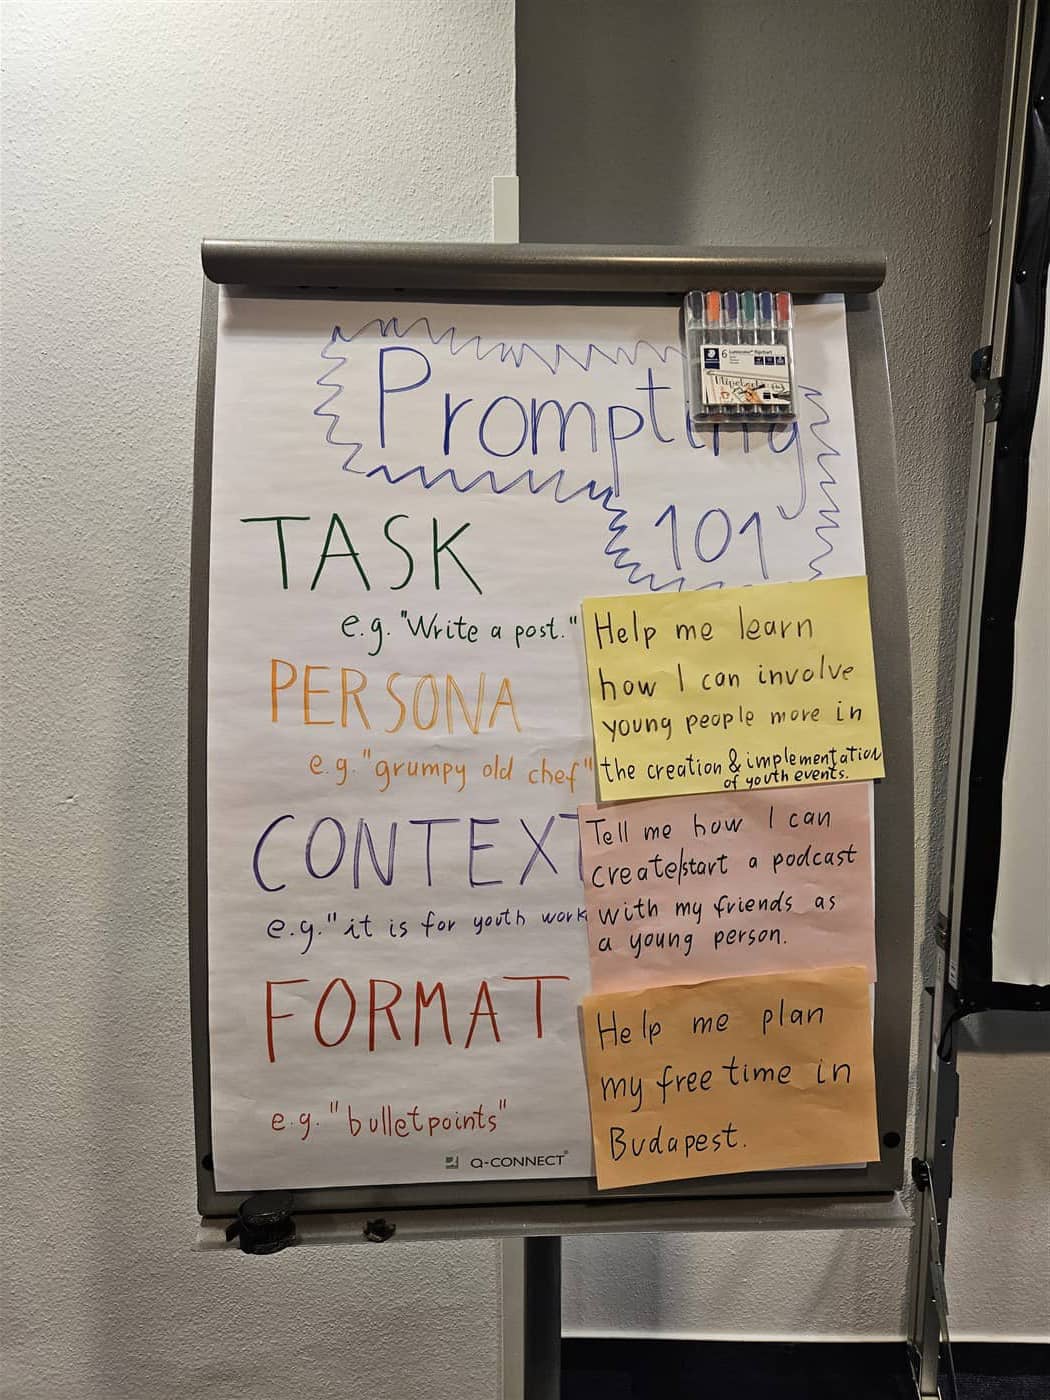 Prompting
101
TASK
e.g. "Write a post."
PERSONA
e.g. "grumpy old chef"
CONTEXT
e.g. "it is for youth work
FORMAT
e.g. "bulletpoints"
Q-CONNECT
Help me learn
how I can involve
young people more in
the creation & implementation
of youth events.
Tell me how I can
create/start a podcast
with my friends as
a young person.
Help me plan
my free time in
Budapest.
6 Lumocolor flipchart